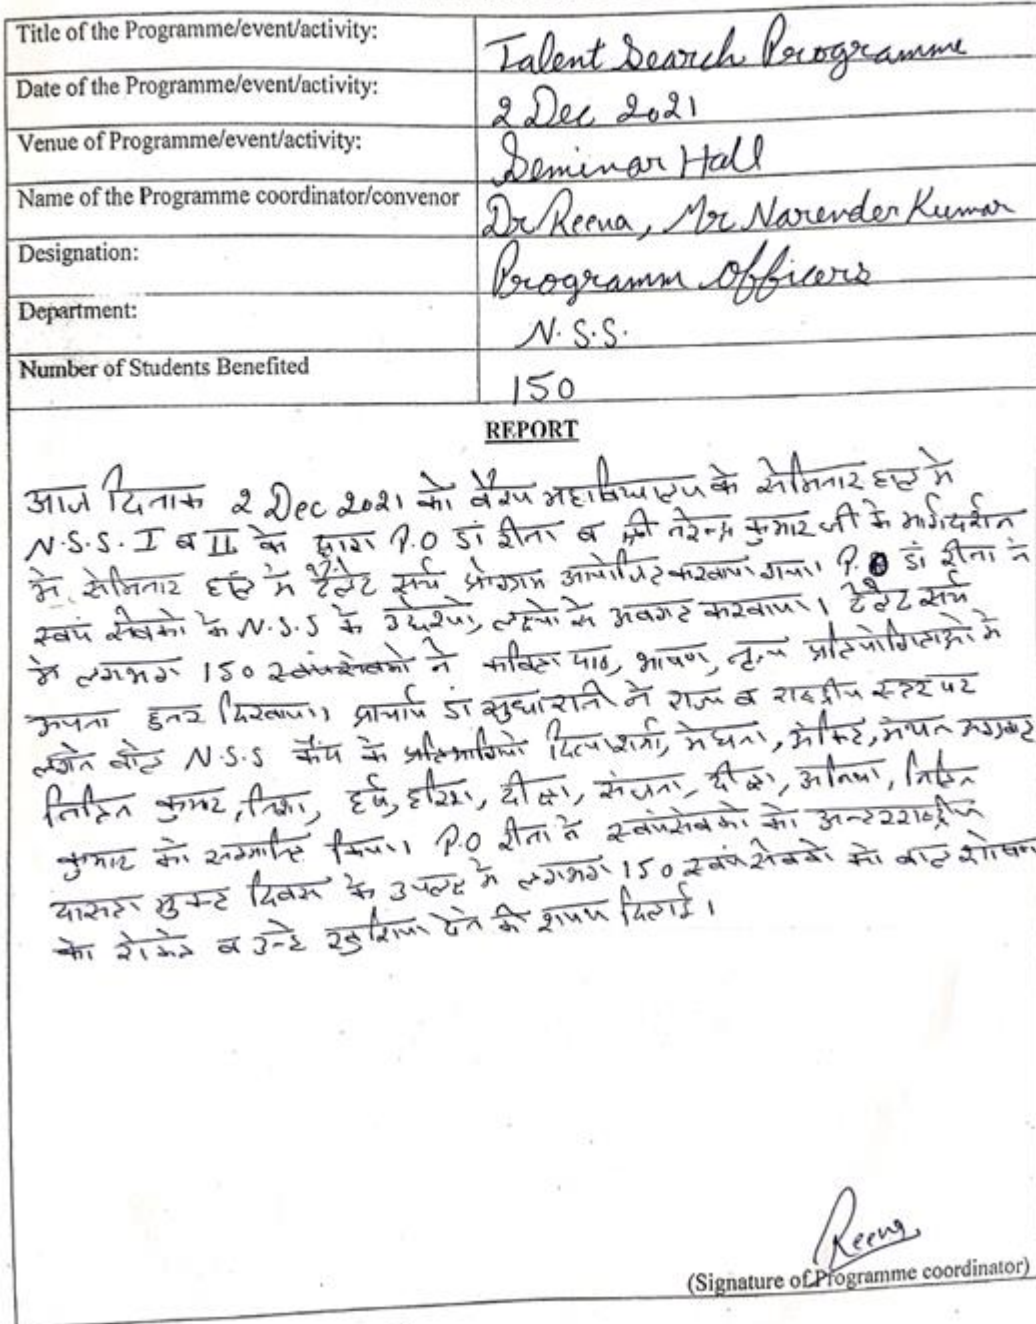 Title of the Programme/event/activity: Talent Search Programme
Date of the Programme/event/activity: 2 Dec 2021
Venue of Programme/event/activity: Seminar Hall
Name of the Programme coordinator/convenor Dr Reena, Mr Narender Kumar
Designation: Programm Officers
Department: N.S.S.
Number of Students Benefited 150
REPORT
आज दिनांक 2 Dec 2021 को वैश्य महाविद्यालय के सेमिनार हाल में
N.S.S. I व II के द्वारा P.O डॉ रीना व श्री नरेन्द्र कुमार जी के मार्गदर्शन
में सेमिनार हाल में टैलेंट सर्च प्रोग्राम आयोजित करवाया गया। P.O डॉ रीना ने
स्वयं सेवकों के N.S.S के उद्देश्यों, लक्ष्यों से अवगत करवाया। टैलेंट सर्च
में लगभग 150 स्वयंसेवकों ने कविता पाठ, भाषण, नृत्य प्रतियोगिताओं में
अपना हुनर दिखाया। प्राचार्य डॉ सुधा रानी ने राज्य व राष्ट्रीय स्तर पर
लगने वाले N.S.S कैंप के प्रतिभागियों दिव्या शर्मा, मेघना, अंकित,
नितिन कुमार, निशा, हर्ष, हरिश, दीक्षा, संजना, दीक्षा, नितिन
कुमार को सम्मानित किया। P.O रीना ने स्वयंसेवकों को अन्तरराष्ट्रीय
दासता मुक्त दिवस के उपलक्ष में लगभग 150 स्वयंसेवकों को बाल शोषण
को रोकने व उन्हें शिक्षा देने की शपथ दिलाई।
Reena
(Signature of Programme coordinator)